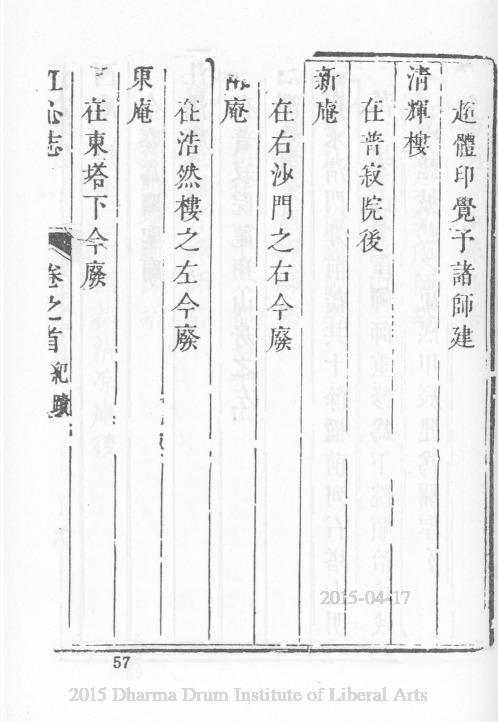 超體印覺子諸師建
清輝樓
在普寂院後
新庵
在右沙門之右今廢
庵
在浩然樓之左今廢
東庵
在東塔下今廢
志
卷之首
紀蹟
57
2015-04-17
2015 Dharma Drum Institute of Liberal Arts